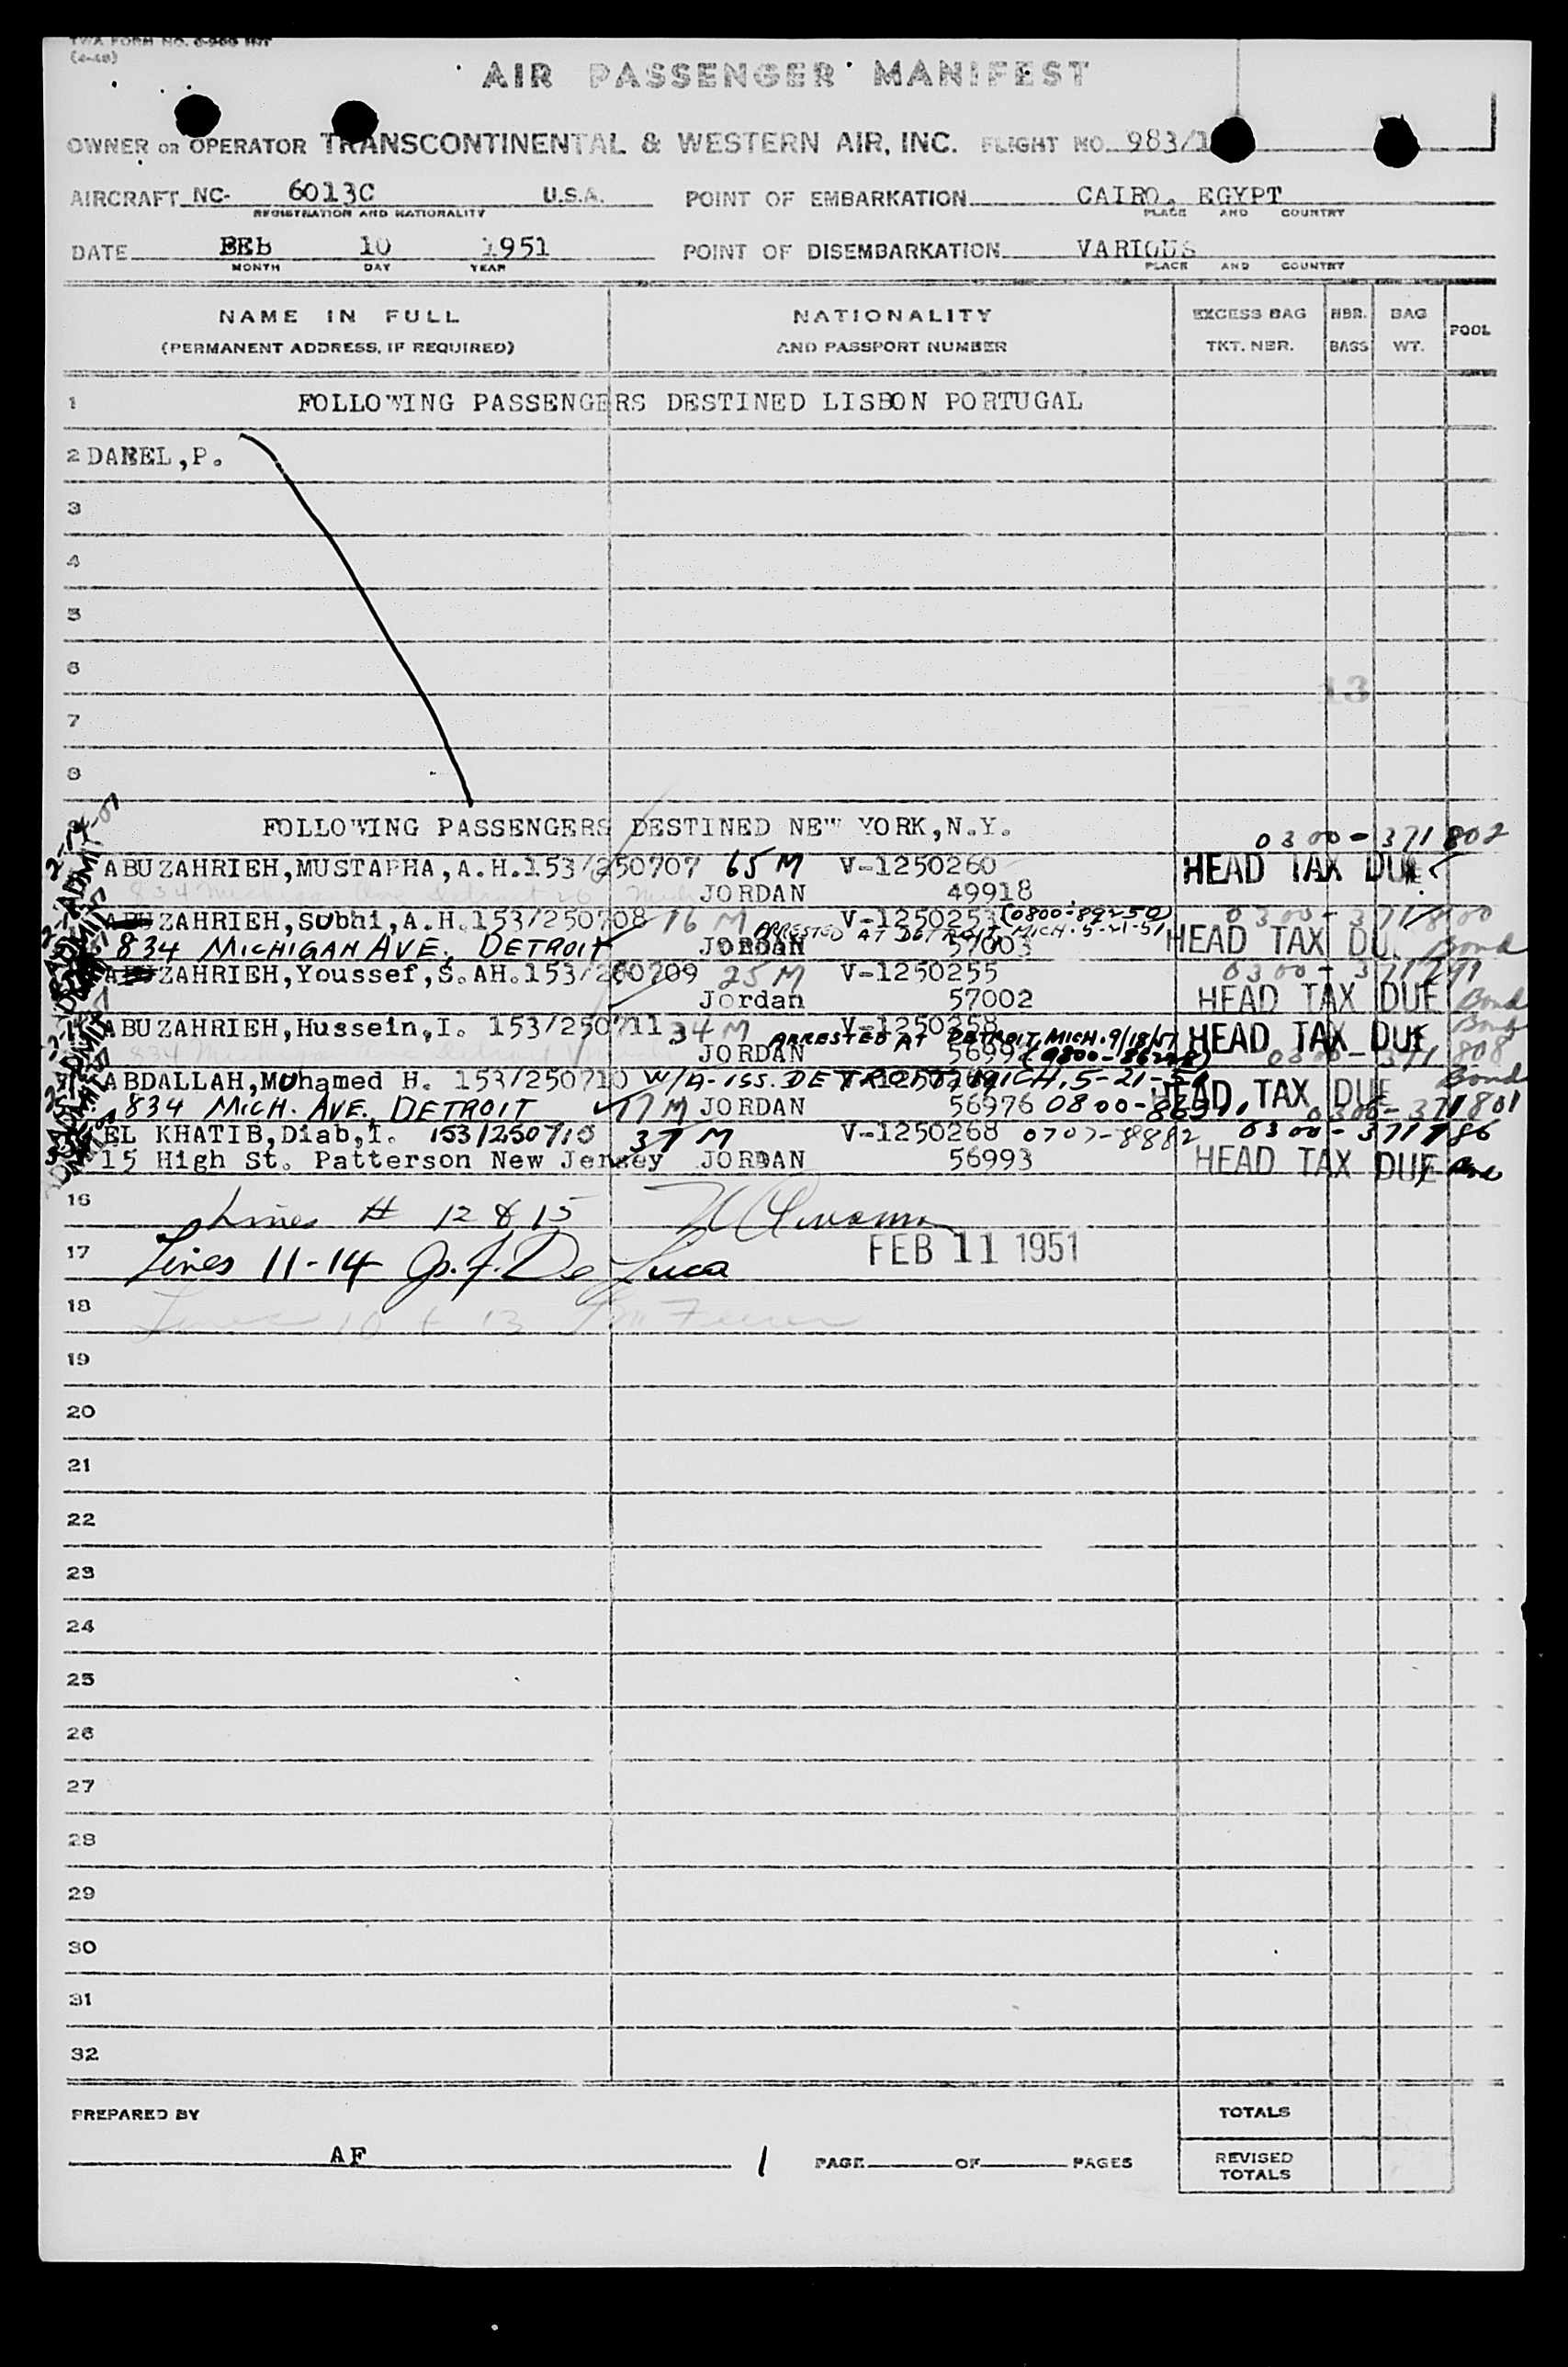 TWA FORM NO.
(4-48)
AIR PASSENGER MANIFEST
OWNER OR OPERATOR TRANSCONTINENTAL & WESTERN AIR, INC. FLIGHT NO. 983/1
AIRCRAFT NC- 6013C U.S.A. POINT OF EMBARKATION CAIRO, EGYPT
REGISTRATION AND NATIONALITY PLACE AND COUNTRY
DATE 10 1951 POINT OF DISEMBARKATION VARIOUS
MONTH DAY YEAR PLACE AND COUNTRY
NAME IN FULL NATIONALITY EXCESS BAG NBR. BAG POOL
(PERMANENT ADDRESS, IF REQUIRED) AND PASSPORT NUMBER TKT. NBR. BAGS WT.
1 FOLLOWING PASSENGERS DESTINED LISBON PORTUGAL
2 P.
3
4
5
6
13
7
8
FOLLOWING PASSENGERS DESTINED NEW YORK, N.Y.
0300-371802
ABUZAHRIEH, MUSTAPHA, A.H. 153/250707 65 M V-1250260 HEAD TAX DUE
834 Michigan Ave Detroit 26 Mich JORDAN 49918
ZAHRIEH, Subhi, A.H. 153/250708 16 M V-1250253 (0800-89250) 0300-371800
ARRESTED AT DETROIT, MICH. 5-21-51
834 MICHIGAN AVE, DETROIT JORDAN 57003 HEAD TAX DUE Bond
ZAHRIEH, Youssef, S. AH. 153/250709 25 M V-1250255 0300-371791
Jordan 57002 HEAD TAX DUE Bond
ABUZAHRIEH, Hussein, I. 153/250711 34 M V-1250258 HEAD TAX DUE Bond
ARRESTED AT DETROIT, MICH. 9/18/51
834 JORDAN 0300-371808
ABDALLAH, Muhamed H. 153/250710 W/A-ISS. DETROIT, MICH. 5-21-51 HEAD TAX DUE Bond
834 MICH. AVE, DETROIT 17 M JORDAN 56976 0800- 0300-371801
EL KHATIB, Diab, I. 153/250715 37 M V-1250268 0707-8882 0300-371786
15 High St. Patterson New Jersey JORDAN 56993 HEAD TAX DUE
16 Lines # 12 & 15
17 Lines 11-14 De Luca FEB 11 1951
18 Lines 10 & 13
19
20
21
22
23
24
25
26
27
28
29
30
31
32
PREPARED BY TOTALS
AF 1 PAGE OF PAGES REVISED TOTALS